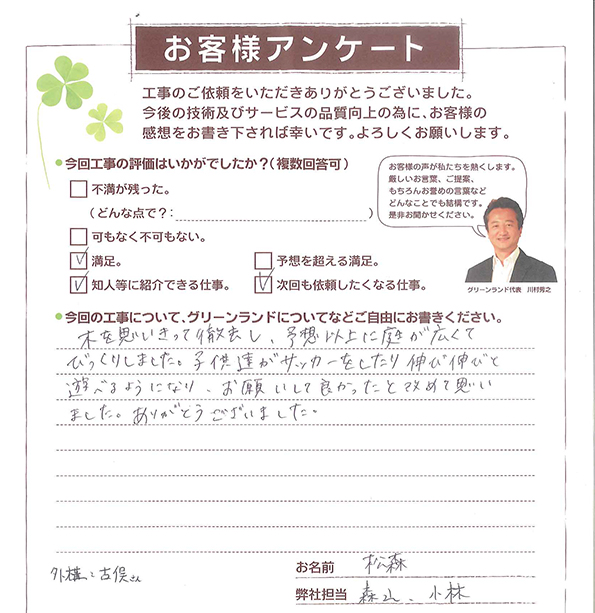 お客様アンケート
工事のご依頼をいただきありがとうございました。
今後の技術及びサービスの品質向上の為に、お客様の
感想をお書き下されば幸いです。よろしくお願いします。
●今回工事の評価はいかがでしたか？（複数回答可）
□不満が残った。
（どんな点で？: ）
□可もなく不可もない。
☑満足。
□予想を超える満足。
☑知人等に紹介できる仕事。
☑次回も依頼したくなる仕事。
お客様の声が私たちを熱くします。
厳しいお言葉、ご提案、
もちろんお誉めの言葉など
どんなことでも結構です。
是非お聞かせください。
グリーンランド代表 川村秀之
●今回の工事について、グリーンランドについてなどご自由にお書きください。
木を思いきって撤去し、予想以上に庭が広くて
びっくりしました。子供達がサッカーをしたり伸び伸びと
遊べるようになり、お願いして良かったと改めて思い
ました。ありがとうございました。
お名前 松森
外構：古俣さん
弊社担当 森山、小林